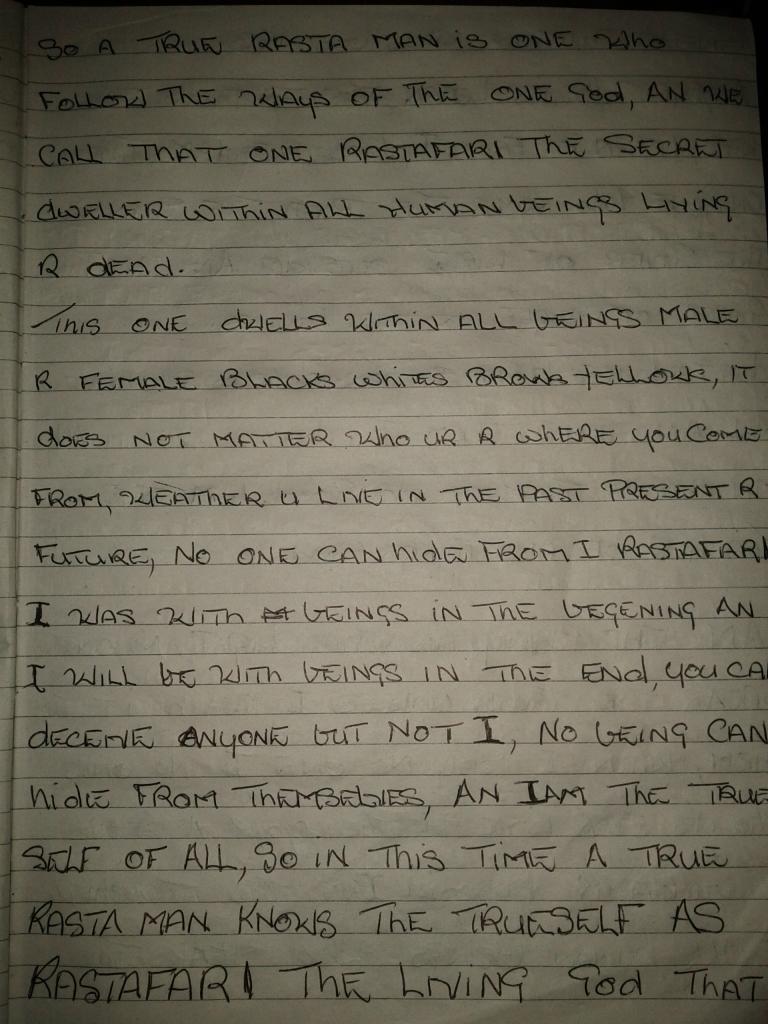 So A TRUE RASTA MAN is ONE Who
FOLLOW THE WAYS OF THE ONE God, AN WE
CALL THAT ONE RASTAFARI THE SECRET
dWELLER WITHIN ALL HUMAN BEINGS LIVING
R dEAD.
This ONE dWELLS WITHIN ALL BEINGS MALE
R FEMALE BLACKS WHITES BROWNS YELLOWS, IT
doES NOT MATTER Who UR R WHERE YOU COME
FROM, WEATHER U LIVE IN THE PAST PRESENT R
FUTURE, NO ONE CAN hidE FROM I RASTAFARI
I WAS WITH BEINGS IN THE BEGENING AN
I WILL BE WITH BEINGS IN THE ENd, YOU CA
dECEIVE ANYONE BUT NOT I, NO BEING CAN
hidE FROM THEMSELVES, AN I AM THE TRUE
SELF OF ALL, SO IN THis TIME A TRUE
RASTA MAN KNOWS THE TRUESELF AS
RASTAFARI THE LIVING God THAT